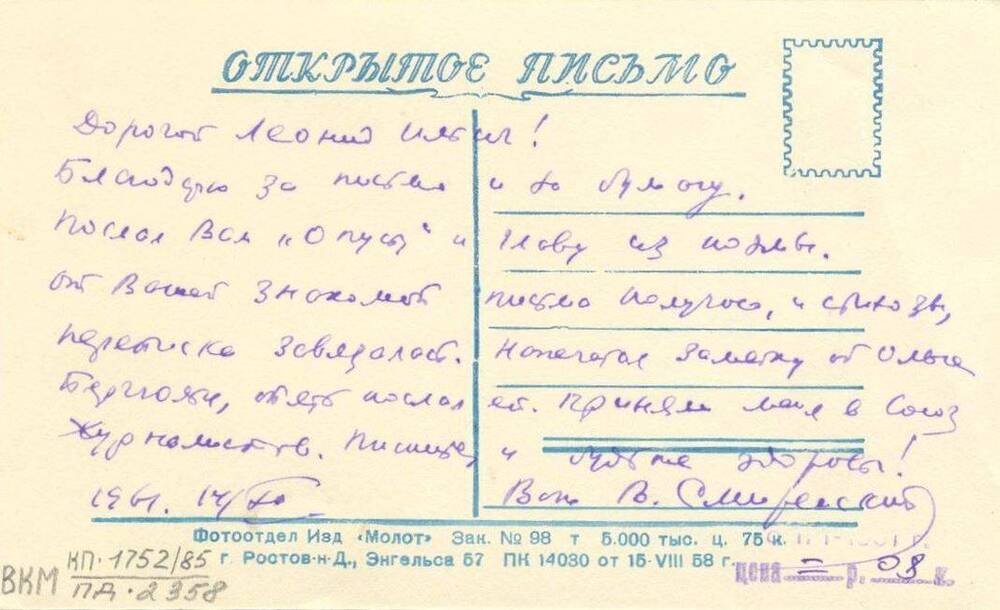 ОТКРЫТОЕ ПИСЬМО
Дорогой Леонид Ильич!
Благодарю за письмо и за бумагу.
Послал Вам „Опусы" и главу из поэмы.
от Вашей знакомой письмо получил, и стихи,
переписка завязалась. Напечатал заметку об Ольге
Берггольц, опять послал ей. Приняли меня в Союз
Журналистов. Пишите, и будьте здоровы!
1961. 14/
Ваш В. Смиренский
Фотоотдел Изд «Молот» Зак. № 98 т 5.000 тыс. ц. 75 к.
г. Ростов-н-Д., Энгельса 57 ПК 14030 от 15-VIII 58 г.
цена = р. 08 к.
ВКМ КП·1752/85
ПД·2358